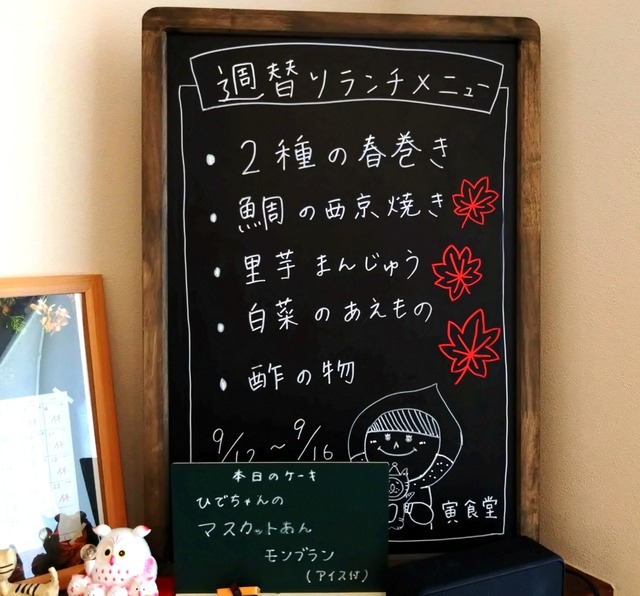 週替りランチメニュー
・2種の春巻き
・鯛の西京焼き
・里芋まんじゅう
・白菜のあえもの
・酢の物
9/12～9/16
寅食堂
本日のケーキ
ひでちゃんの
マスカットあん
モンブラン
(アイス付)